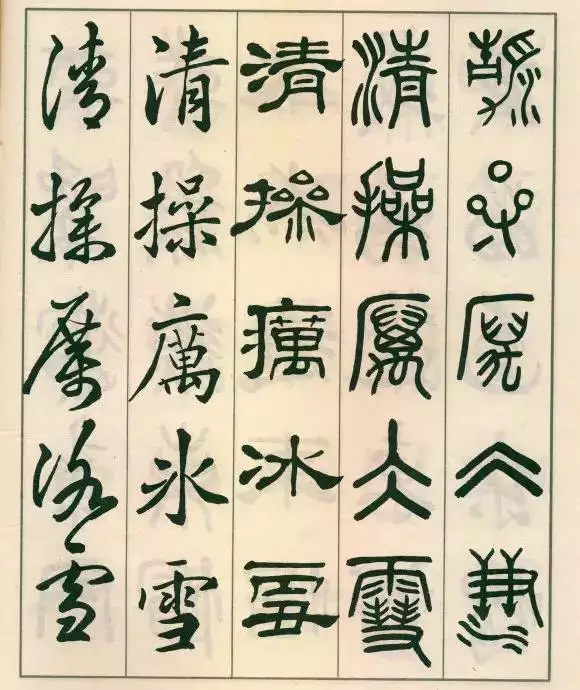 清操厲冰雪
清操厲冰雪
清操厲冰雪
清操厲冰雪
清操厲冰雪